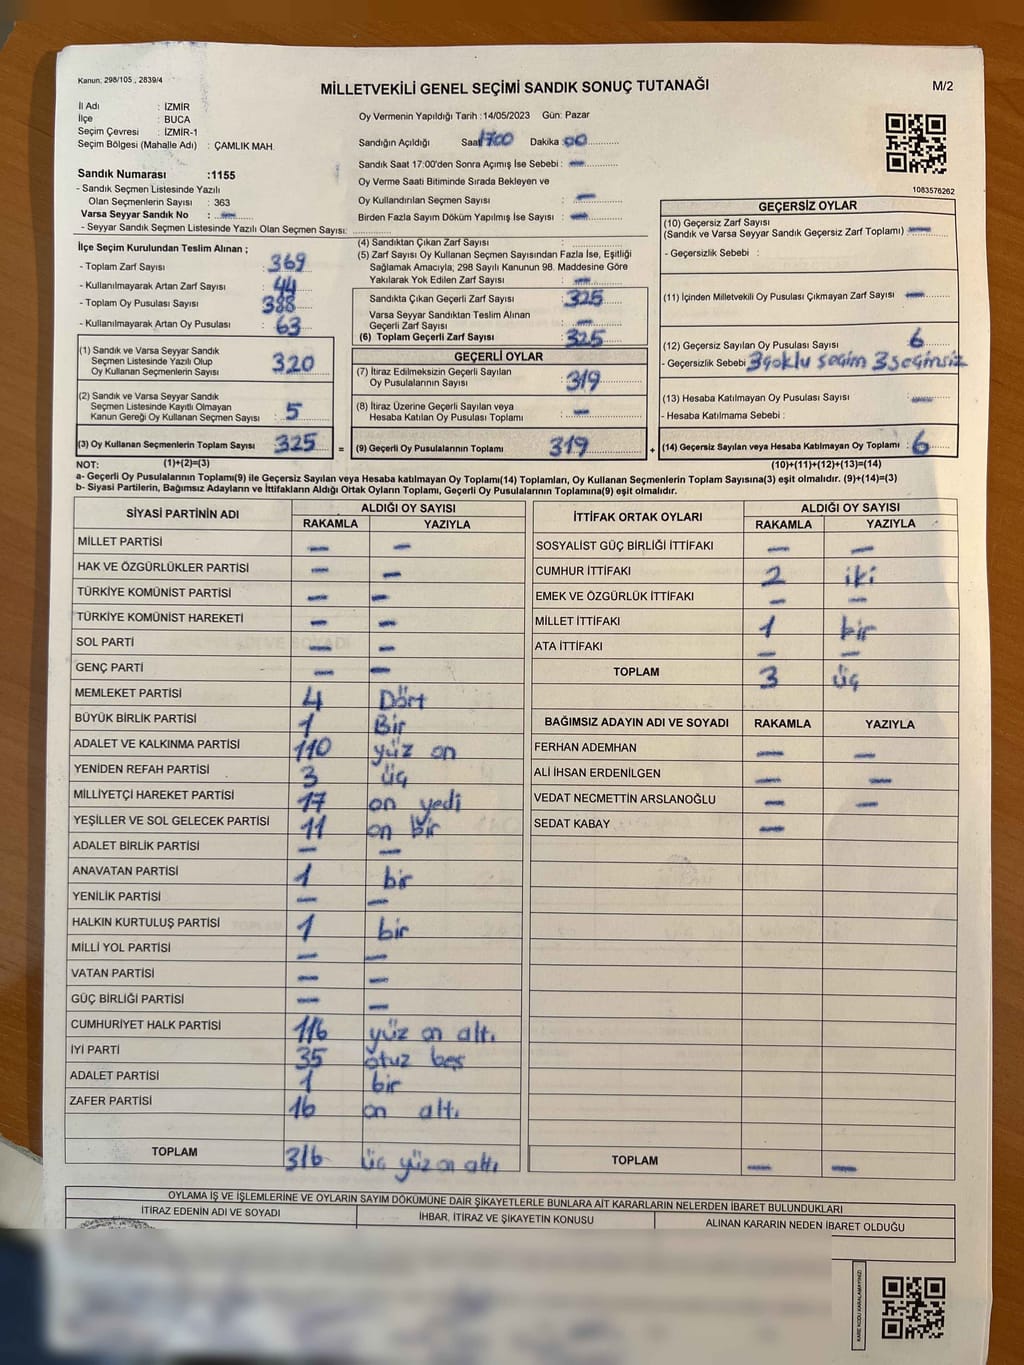 Kanun: 298/105 , 2839/4
MİLLETVEKİLİ GENEL SEÇİMİ SANDIK SONUÇ TUTANAĞI
M/2
İl Adı : İZMİR
İlçe : BUCA
Seçim Çevresi : İZMİR-1
Seçim Bölgesi (Mahalle Adı) : ÇAMLIK MAH.
Sandık Numarası :1155
- Sandık Seçmen Listesinde Yazılı
Olan Seçmenlerin Sayısı : 363
Varsa Seyyar Sandık No : —
- Seyyar Sandık Seçmen Listesinde Yazılı Olan Seçmen Sayısı:
Oy Vermenin Yapıldığı Tarih :14/05/2023 Gün: Pazar
Sandığın Açıldığı Saat 1700 Dakika :00
Sandık Saat 17:00'den Sonra Açımış İse Sebebi : —
Oy Verme Saati Bitiminde Sırada Bekleyen ve
Oy Kullandırılan Seçmen Sayısı : —
Birden Fazla Sayım Döküm Yapılmış İse Sayısı : —
1083576262
İlçe Seçim Kurulundan Teslim Alınan ;
- Toplam Zarf Sayısı : 369
- Kullanılmayarak Artan Zarf Sayısı : 44
- Toplam Oy Pusulası Sayısı : 388
- Kullanılmayarak Artan Oy Pusulası : 63
(1) Sandık ve Varsa Seyyar Sandık
Seçmen Listesinde Yazılı Olup
Oy Kullanan Seçmenlerin Sayısı : 320
(2) Sandık ve Varsa Seyyar Sandık
Seçmen Listesinde Kayıtlı Olmayan
Kanun Gereği Oy Kullanan Seçmen Sayısı : 5
(3) Oy Kullanan Seçmenlerin Toplam Sayısı : 325
(1)+(2)=(3)
(4) Sandıktan Çıkan Zarf Sayısı :
(5) Zarf Sayısı Oy Kullanan Seçmen Sayısından Fazla İse, Eşitliği
Sağlamak Amacıyla, 298 Sayılı Kanunun 98. Maddesine Göre
Yakılarak Yok Edilen Zarf Sayısı : —
Sandıkta Çıkan Geçerli Zarf Sayısı : 325
Varsa Seyyar Sandıktan Teslim Alınan
Geçerli Zarf Sayısı : —
(6) Toplam Geçerli Zarf Sayısı : 325
GEÇERLİ OYLAR
(7) İtiraz Edilmeksizin Geçerli Sayılan
Oy Pusulalarının Sayısı : 319
(8) İtiraz Üzerine Geçerli Sayılan veya
Hesaba Katılan Oy Pusulası Toplamı : —
= (9) Geçerli Oy Pusulalarının Toplamı : 319
GEÇERSİZ OYLAR
(10) Geçersiz Zarf Sayısı
(Sandık ve Varsa Seyyar Sandık Geçersiz Zarf Toplamı) : —
- Geçersizlik Sebebi :
(11) İçinden Milletvekili Oy Pusulası Çıkmayan Zarf Sayısı : —
(12) Geçersiz Sayılan Oy Pusulası Sayısı : 6
- Geçersizlik Sebebi : 3 çoklu seçim 3 seçimsiz
(13) Hesaba Katılmayan Oy Pusulası Sayısı : —
- Hesaba Katılmama Sebebi :
+ (14) Geçersiz Sayılan veya Hesaba Katılmayan Oy Toplamı : 6
(10)+(11)+(12)+(13)=(14)
NOT:
a- Geçerli Oy Pusulalarının Toplamı(9) ile Geçersiz Sayılan veya Hesaba katılmayan Oy Toplamı(14) Toplamları, Oy Kullanan Seçmenlerin Toplam Sayısına(3) eşit olmalıdır. (9)+(14)=(3)
b- Siyasi Partilerin, Bağımsız Adayların ve İttifakların Aldığı Ortak Oyların Toplamı, Geçerli Oy Pusulalarının Toplamına(9) eşit olmalıdır.
SİYASİ PARTİNİN ADI ALDIĞI OY SAYISI
RAKAMLA YAZIYLA
MİLLET PARTİSİ — —
HAK VE ÖZGÜRLÜKLER PARTİSİ — —
TÜRKİYE KOMÜNİST PARTİSİ — —
TÜRKİYE KOMÜNİST HAREKETİ — —
SOL PARTİ — —
GENÇ PARTİ — —
MEMLEKET PARTİSİ 4 Dört
BÜYÜK BİRLİK PARTİSİ 1 Bir
ADALET VE KALKINMA PARTİSİ 110 yüz on
YENİDEN REFAH PARTİSİ 3 üç
MİLLİYETÇİ HAREKET PARTİSİ 17 on yedi
YEŞİLLER VE SOL GELECEK PARTİSİ 11 on bir
ADALET BİRLİK PARTİSİ — —
ANAVATAN PARTİSİ 1 bir
YENİLİK PARTİSİ — —
HALKIN KURTULUŞ PARTİSİ 1 bir
MİLLİ YOL PARTİSİ — —
VATAN PARTİSİ — —
GÜÇ BİRLİĞİ PARTİSİ — —
CUMHURİYET HALK PARTİSİ 116 yüz on altı
İYİ PARTİ 35 otuz beş
ADALET PARTİSİ 1 bir
ZAFER PARTİSİ 16 on altı
TOPLAM 316 üç yüz on altı
İTTİFAK ORTAK OYLARI ALDIĞI OY SAYISI
RAKAMLA YAZIYLA
SOSYALİST GÜÇ BİRLİĞİ İTTİFAKI — —
CUMHUR İTTİFAKI 2 iki
EMEK VE ÖZGÜRLÜK İTTİFAKI — —
MİLLET İTTİFAKI 1 bir
ATA İTTİFAKI — —
TOPLAM 3 üç
BAĞIMSIZ ADAYIN ADI VE SOYADI RAKAMLA YAZIYLA
FERHAN ADEMHAN — —
ALİ İHSAN ERDENİLGEN — —
VEDAT NECMETTİN ARSLANOĞLU — —
SEDAT KABAY —
TOPLAM — —
OYLAMA İŞ VE İŞLEMLERİNE VE OYLARIN SAYIM DÖKÜMÜNE DAİR ŞİKAYETLERLE BUNLARA AİT KARARLARIN NELERDEN İBARET BULUNDUKLARI
İTİRAZ EDENİN ADI VE SOYADI İHBAR, İTİRAZ VE ŞİKAYETİN KONUSU ALINAN KARARIN NEDEN İBARET OLDUĞU
KARE KODU KARALAMAYINIZ!